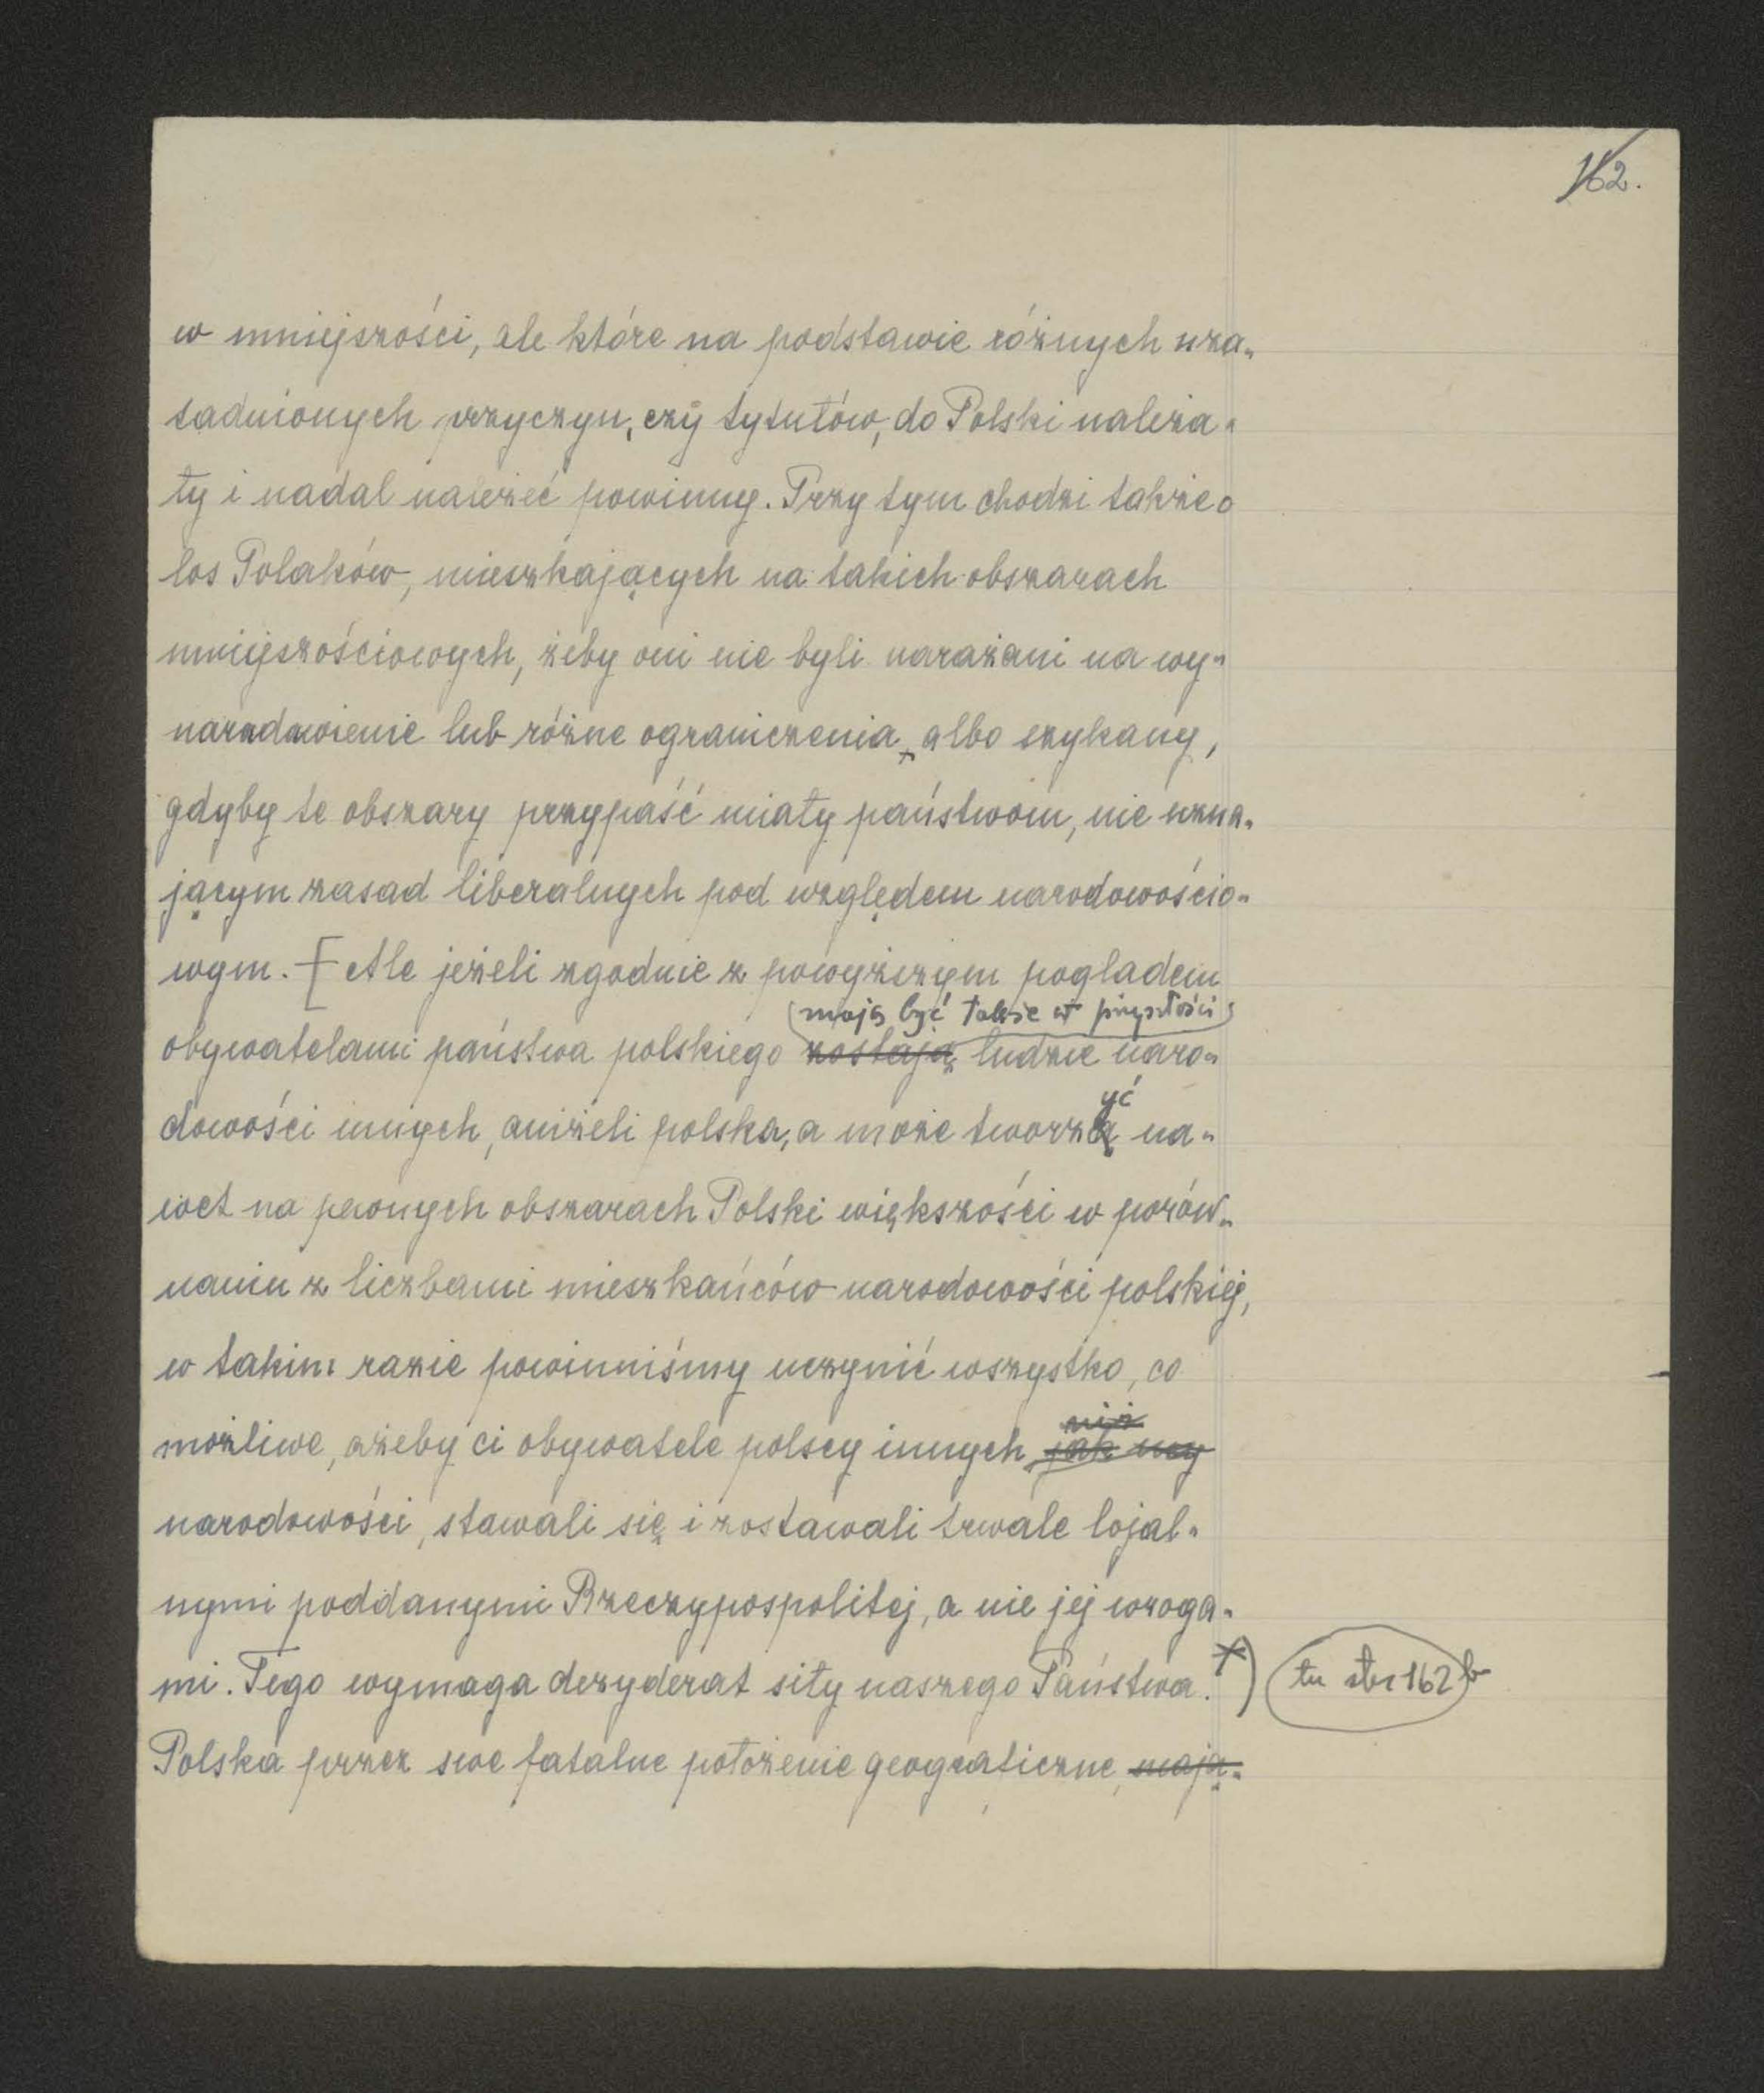 162.
w mniejszości, ale które na podstawie różnych uza-
sadnionych przyczyn, czy tytułów, do Polski należa-
ły i nadal należeć powinny. Przy tym chodzi także o
los Polaków, mieszkających na takich obszarach
mniejszościowych, żeby oni nie byli narażani na wy-
narodowienie lub różne ograniczenia, albo szykany,
gdyby te obszary przypaść miały państwom, nie uzna-
jącym zasad liberalnych pod względem narodowościo-
wym. [Ale jeżeli zgodnie z powyższym poglądem
mają być także w przyszłości
obywatelami państwa polskiego zostają ludzie naro-
yć
dowości innych, aniżeli polska, a może tworzą na-
wet na pewnych obszarach Polski większości w porów-
naniu z liczbami mieszkańców narodowości polskiej,
w takim razie powinniśmy uczynić wszystko, co
niż
możliwe, ażeby ci obywatele polscy innych jak my
narodowości, stawali się i zostawali trwale lojal-
nymi poddanymi Rzeczypospolitej, a nie jej wroga-
mi. Tego wymaga dezyderat siły naszego Państwa. x) tu str 162 b
Polska przez swe fatalne położenie geograficzne, mają-